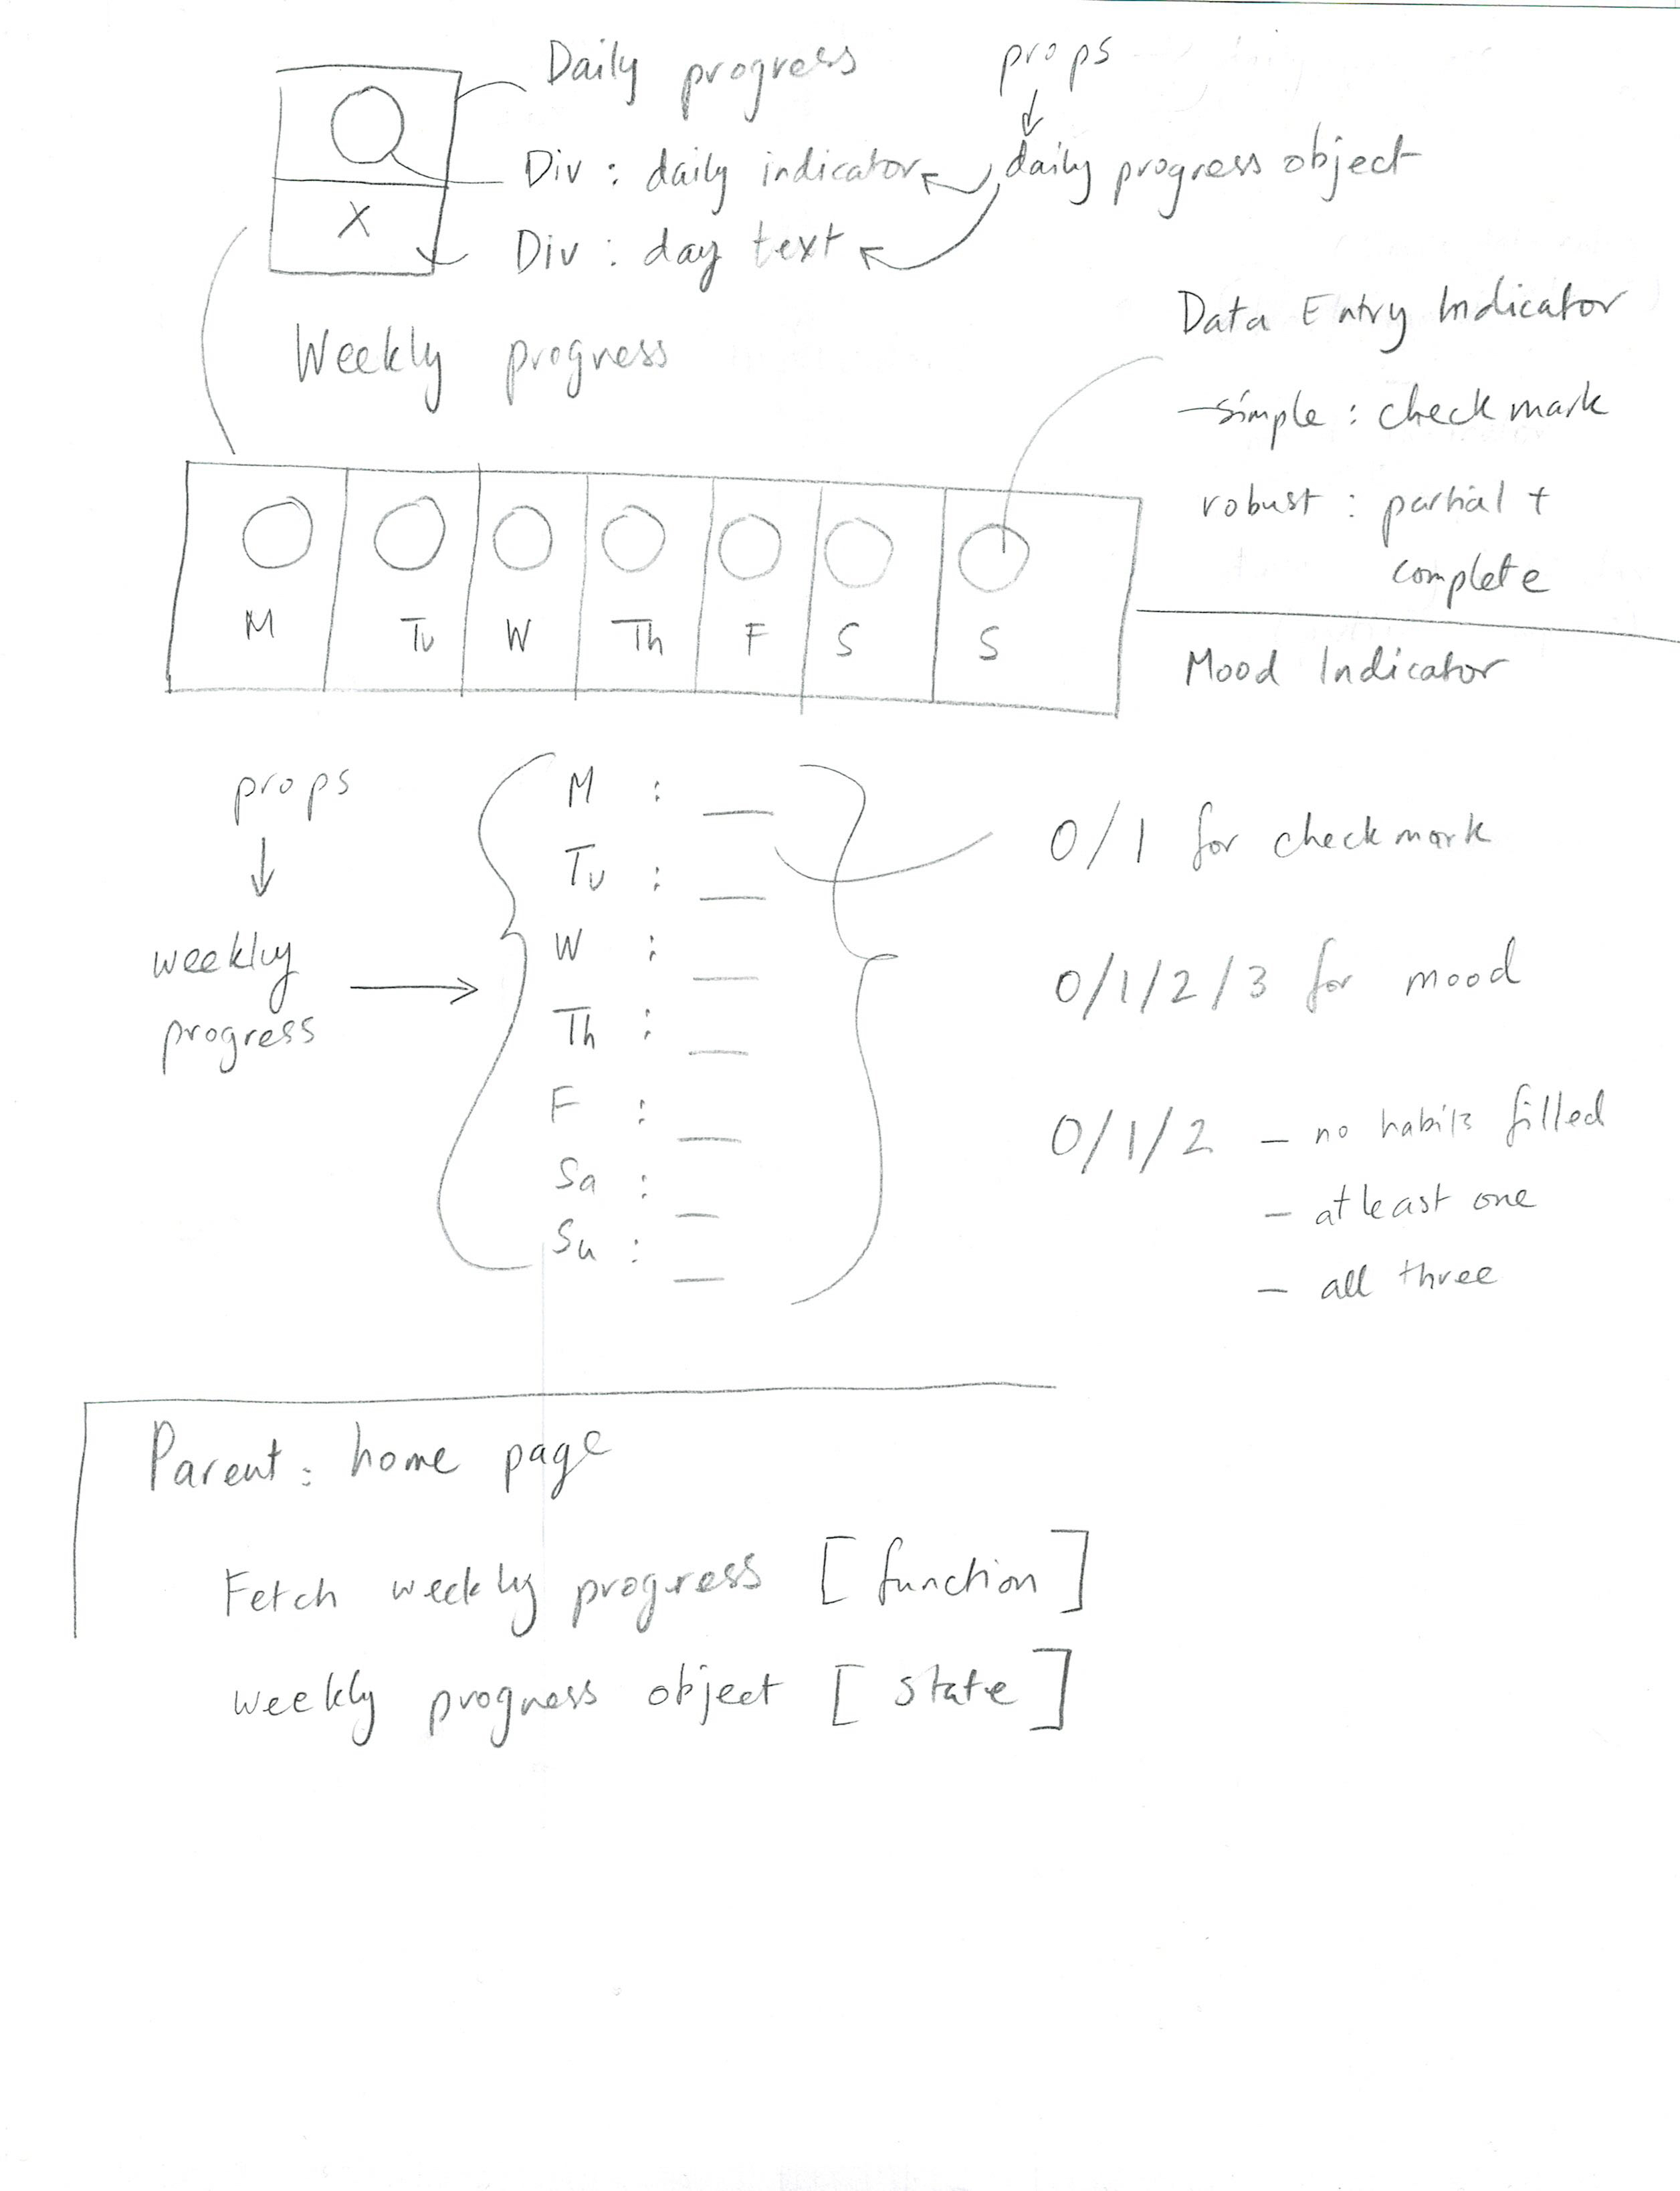 Daily progress
props
Div : daily indicator
daily progress object
X
Div : day text
Weekly progress
Data Entry Indicator
- simple : checkmark
robust : partial +
complete
M Tu W Th F S S
Mood Indicator
props
weekly
progress
M : __
Tu : __
W : __
Th : __
F : __
Sa : __
Su : __
0/1 for checkmark
0/1/2/3 for mood
0/1/2 - no habits filled
- atleast one
- all three
Parent : home page
Fetch weekly progress [function]
weekly progress object [state]